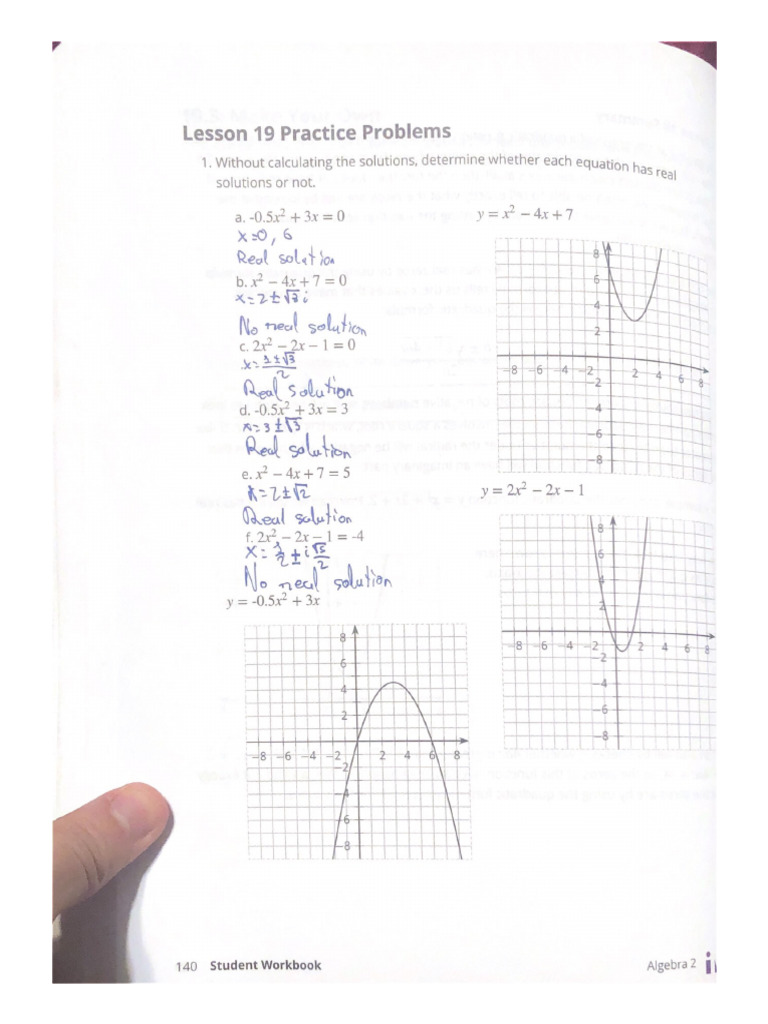 Lesson 19 Practice Problems
1. Without calculating the solutions, determine whether each equation has real
solutions or not.
a. -0.5x² + 3x = 0
x=0, 6
Real solution
b. x² − 4x + 7 = 0
x=2±√3 i
No real solution
c. 2x² − 2x − 1 = 0
x=(1±√3)/2
Real solution
d. -0.5x² + 3x = 3
x=3±√3
Real solution
e. x² − 4x + 7 = 5
x=2±√2
Real solution
f. 2x² − 2x − 1 = -4
x=1/2±i√5/2
No real solution
y = -0.5x² + 3x
8
6
4
2
-8 -6 -4 -2 2 4 6 8
-2
-4
-6
-8
y = x² − 4x + 7
8
6
4
2
-8 -6 -4 -2 2 4 6 8
-2
-4
-6
-8
y = 2x² − 2x − 1
8
6
4
2
-8 -6 -4 -2 2 4 6 8
-2
-4
-6
-8
140 Student Workbook
Algebra 2